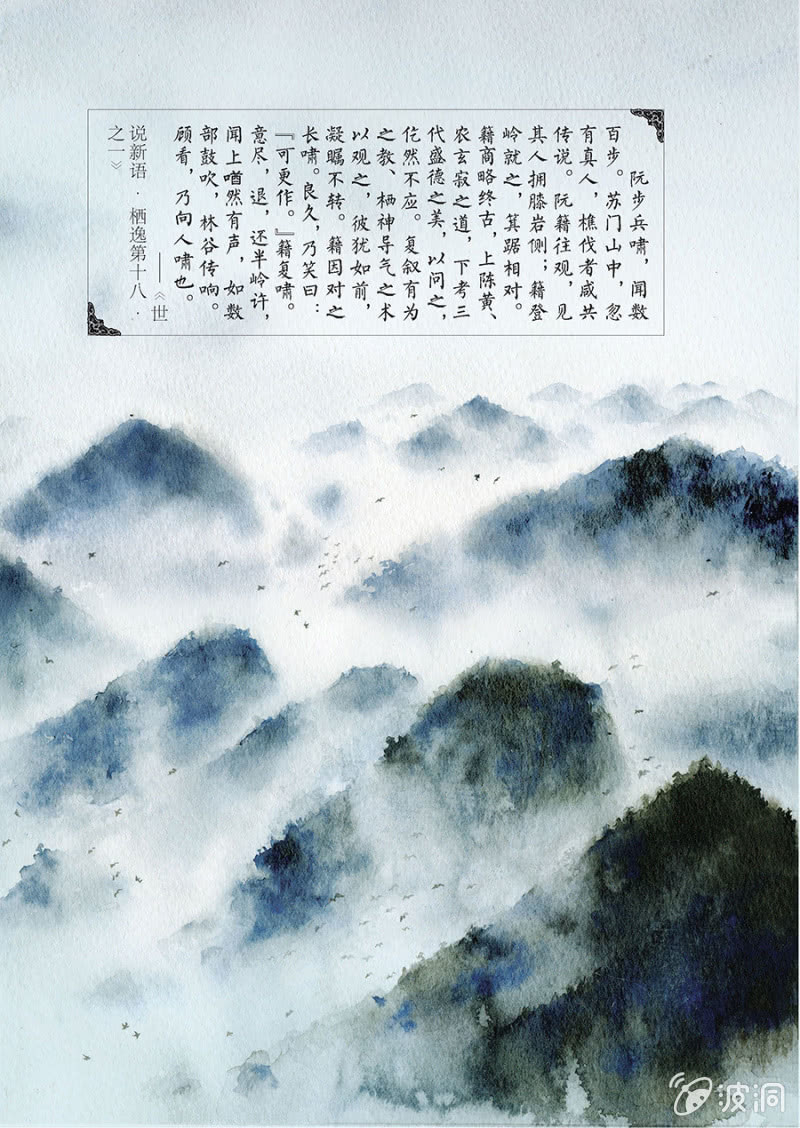 阮步兵啸，闻数
百步。苏门山中，忽
有真人，樵伐者咸共
传说。阮籍往观，见
其人拥膝岩侧；籍登
岭就之，箕踞相对。
籍商略终古，上陈黄、
农玄寂之道，下考三
代盛德之美，以问之，
仡然不应。复叙有为
之教、栖神导气之术
以观之，彼犹如前，
凝瞩不转。籍因对之
长啸。良久，乃笑曰：
『可更作。』籍复啸。
意尽，退，还半岭许，
闻上㗜然有声，如数
部鼓吹，林谷传响。
顾看，乃向人啸也。
——《世
说新语·栖逸第十八·
之一》
波洞